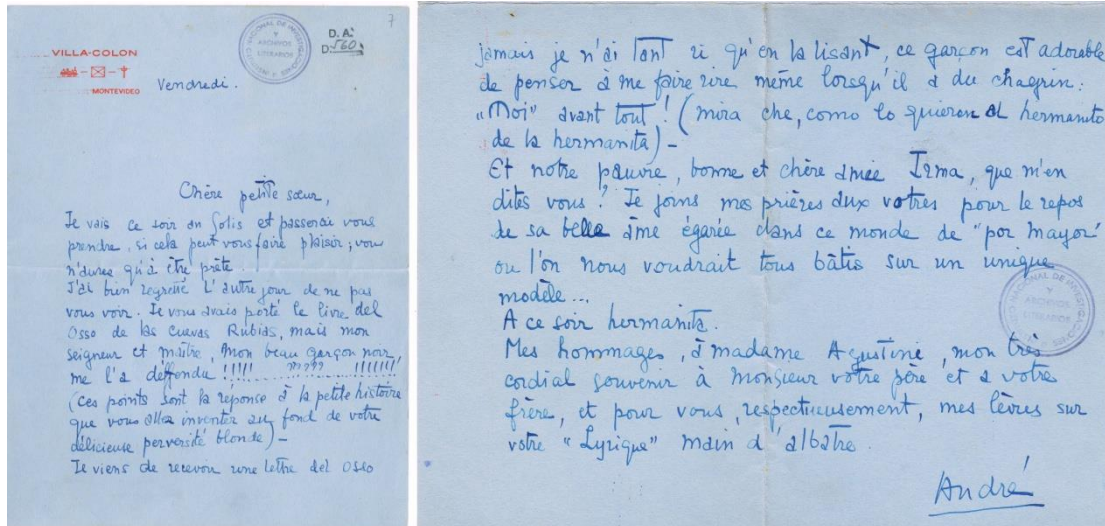 7
VILLA-COLON
MONTEVIDEO
INSTITUTO NACIONAL DE INVESTIGACIONES
Y
ARCHIVOS
LITERARIOS
D. A.
D. 560
Vendredi.
Chère petite sœur,
Je vais ce soir au Solis et passerai vous
prendre, si cela peut vous faire plaisir; vous
n'aurez qu'à être prête.
J'ai bien regretté l'autre jour de ne pas
vous voir. Je vous avais porté le livre del
Osso de las Cuevas Rubias, mais mon
seigneur et maître, mon beau garçon noir,
me l'a deffendu !!!!! ...... ???? ...... !!!!!!!
(ces points sont la réponse à la petite histoire
que vous allez inventer au fond de votre
délicieuse perversité blonde) -
Je viens de recevoir une lettre del Osso
jamais je n'ai tant ri qu'en la lisant, ce garçon est adorable
de penser à me faire rire même lorsqu'il a du chagrin:
"Moi" avant tout! (mira che, como lo quieren al hermanito
de la hermanita) -
Et notre pauvre, bonne et chère amie Irma, que m'en
dites vous? Je joins mes prières aux votres pour le repos
de sa belle âme égarée dans ce monde de "por mayor"
ou l'on nous voudrait tous bâtis sur un unique
modèle...
A ce soir hermanita.
Mes hommages, à madame Agustini, mon très
cordial souvenir à monsieur votre père et a votre
frère, et pour vous, respectueusement, mes lèvres sur
votre "Lyrique" main d'albatre.
André
INSTITUTO NACIONAL DE INVESTIGACIONES
Y
ARCHIVOS
LITERARIOS